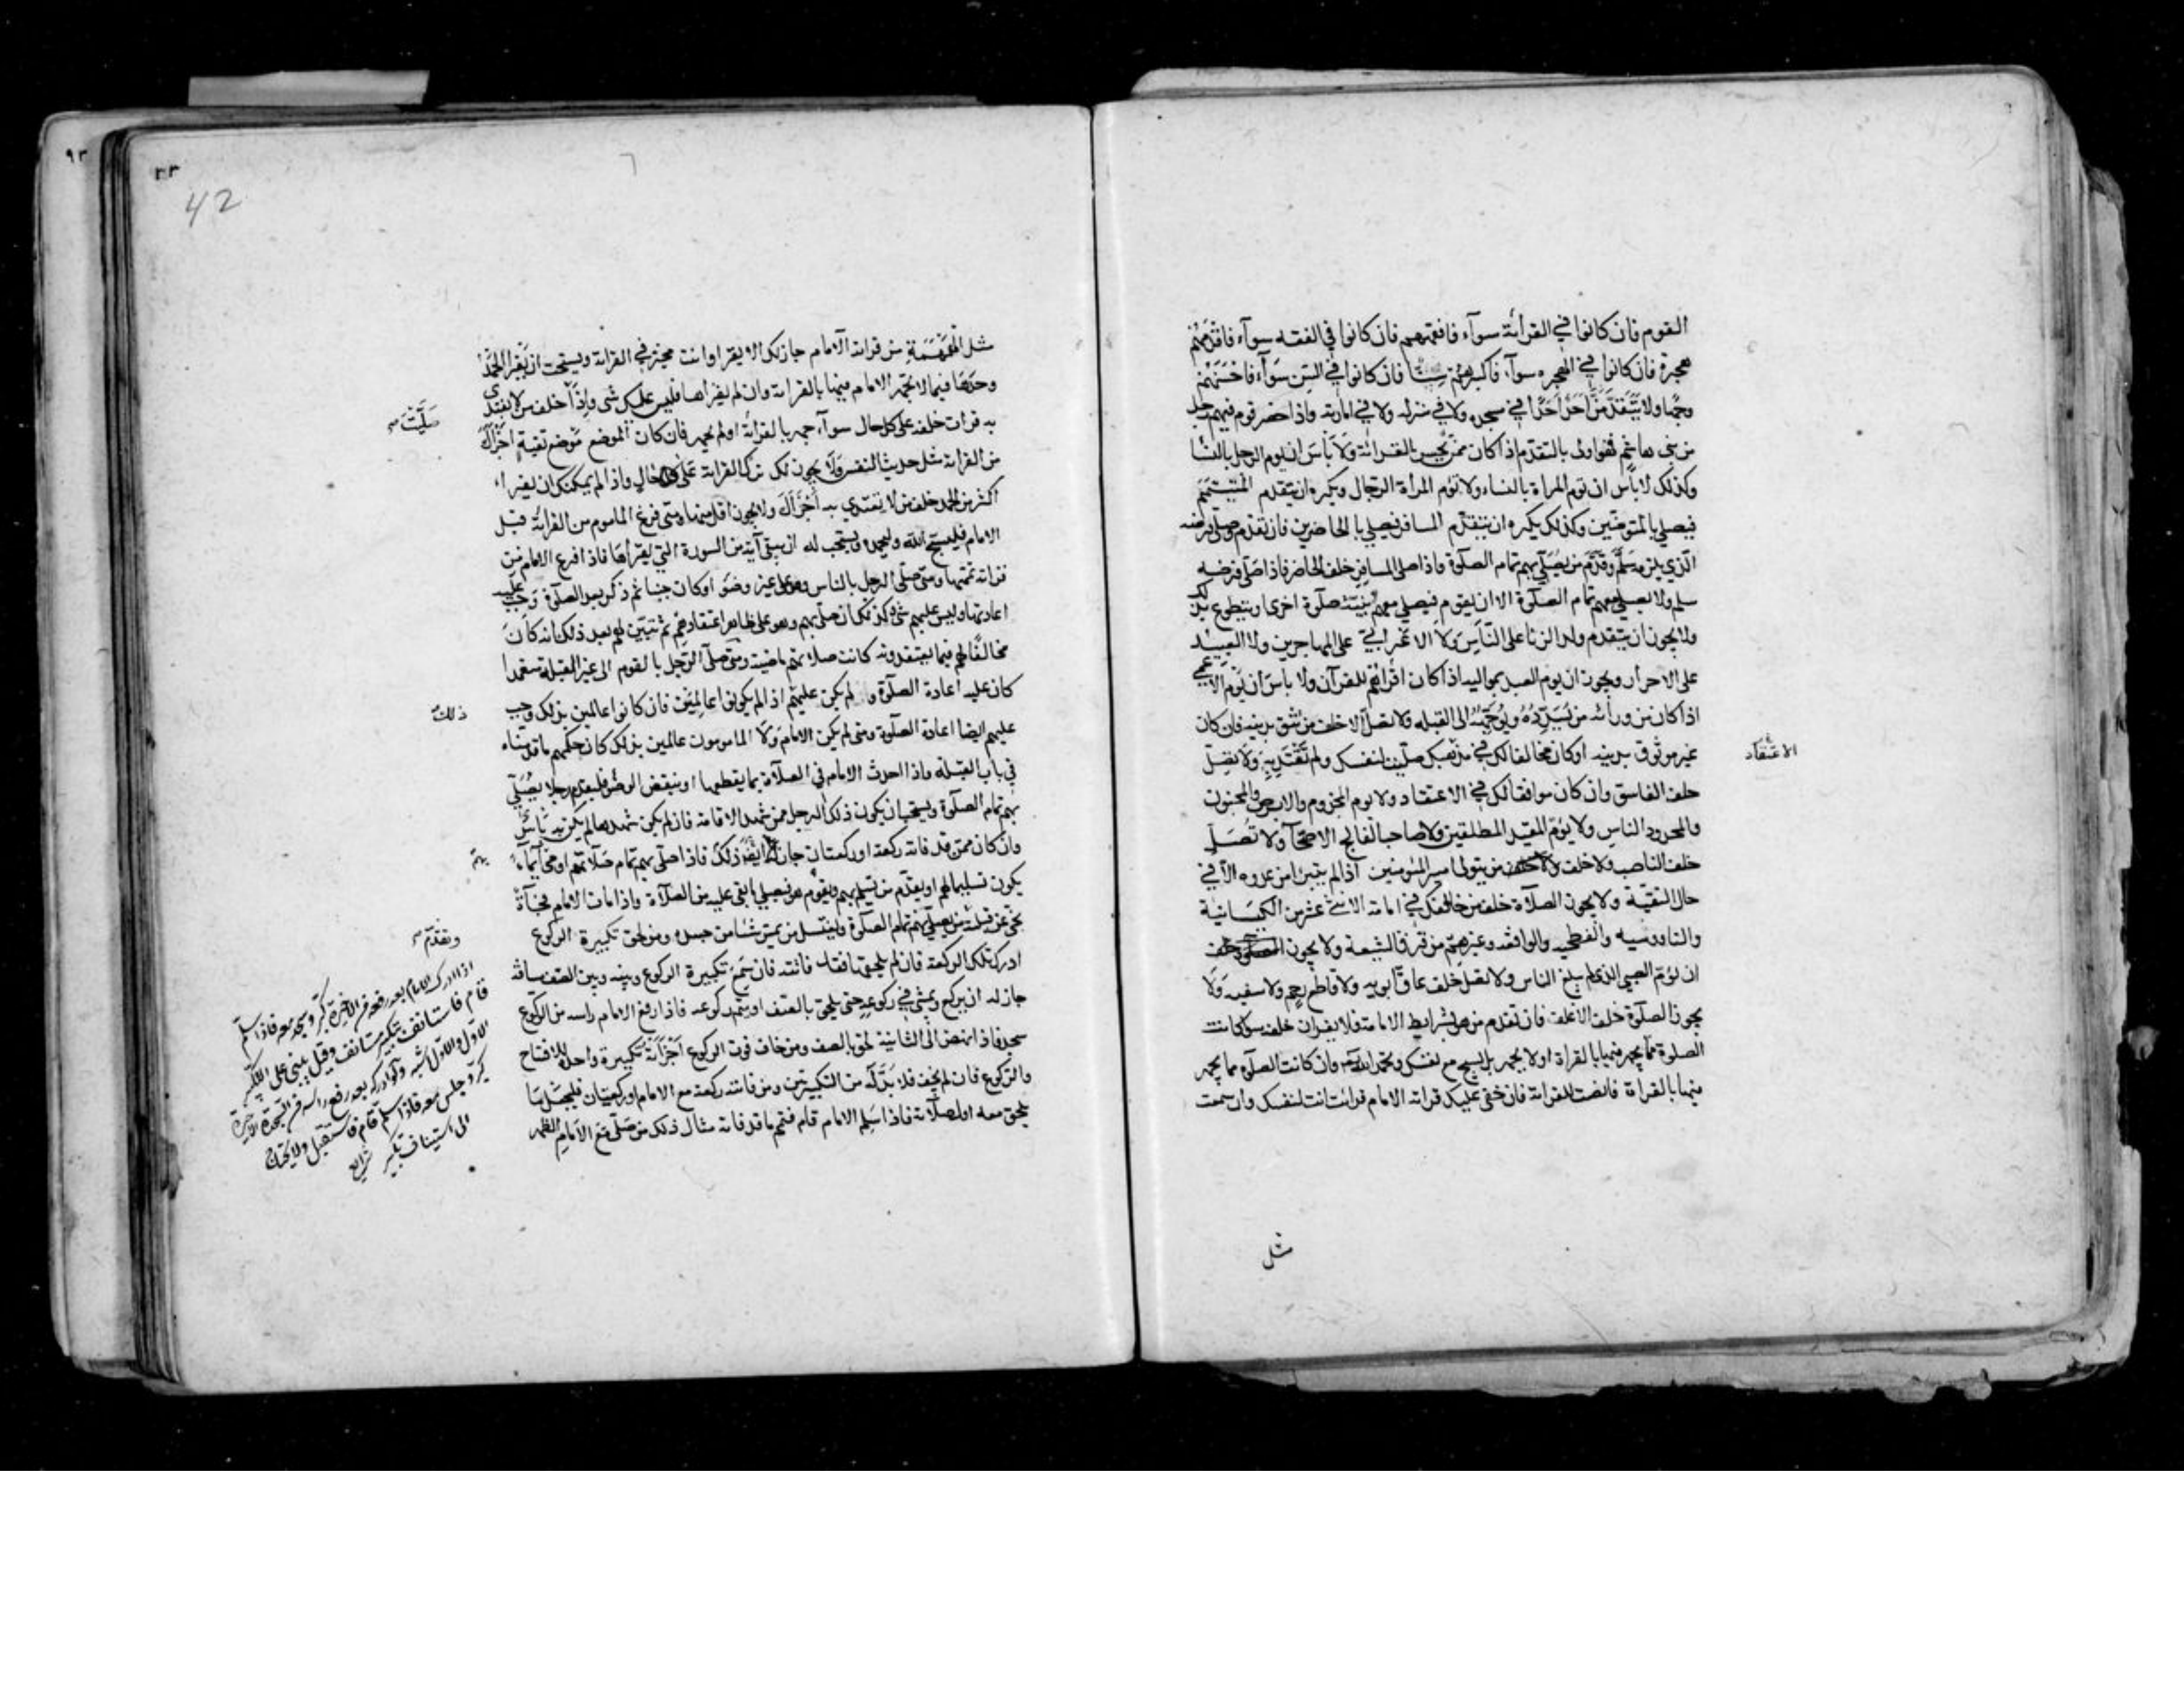 القوم فان كانوا في القرائة سوآء فافقههم فان كانوا في الفقه سوآء فاقدمهم
هجرة فان كانوا في الهجره سوآء فاكبرهم سنا فان كانوا في السن سوآء فاحسنهم
وجها ولا يتقدمن احد احدا في مسجده ولا في منزله ولا في امارته واذا حضر قوم فيهم رجل
من بني هاشم فهو اولى بالتقدم اذا كان ممن يحسن القرائة ولا بأس ان يوم الرجل بالنسا
وكذلك لا بأس ان توم المراة بالنساء ولا توم المرأة الرجال ويكره ان يتقدم المتيمم
فيصلي بالمتوضئين وكذلك يكره ان يتقدم المسافر فيصلي بالحاضرين فان تقدم وصلى فرضه
الذي يلزمه سلم وقدم من يصلي بهم تمام الصلوة واذا صلى المسافر خلف الحاضر فاذا صلى فرضه
سلم ولا يصلي معهم تمام الصلوة الا ان يقوم فيصلي معهم بنية صلوة اخرى او يتطوع بذلك
ولا يجوز ان يتقدم ولد الزنا على الناس ولا الاعرابي على المهاجرين ولا العبيد
على الاحرار ويجوز ان يوم العبد بمواليه اذا كان اقراهم للقرآن ولا بأس ان يوم الاعمي
اذا كان من ورائه من يسدده ويوجهه الى القبله ولا تصل الا خلف من تثق بدينه فان كان
غير موثوق بدينه او كان مخالفا لك في مذهبك صليت لنفسك ولم تقتد به ولا تصل
خلف الفاسق وان كان موافقا لك في الاعتقاد ولا يوم المجذوم والابرص والمجنون
والمحدود الناس ولا يوم المقيد المطلقين ولا صاحب الفالج الاصحآ ولا تصل
خلف الناصب ولا خلف من يتولا امير المؤمنين اذا لم يتبرا من عدوه الا في
حال التقية ولا يجوز الصلاة خلف من خالفك في امامة الاثني عشر من الكيسانية
والناووسيه والفطحيه والواقفه وغيرهم من فرق الشيعة ولا يجوز
ان يؤم الصبي الذي لم يبلغ الناس ولا تصل خلف عاق ابويه ولا قاطع رحم ولا سفيه ولا
يجوز الصلوة خلف الاغلف فان تقدم من هو بشرايط الامامة فلا يقران خلفه سوآ كانت
الصلوة مما يجهر فيها بالقراة او لا يجهر بل يسبح مع نفسك وتحمد الله تعالى وان كانت الصلوة مما يجهر
فيها بالقراة فانصت للقراته فان خفى عليك قراته الامام قرات انت لنفسك وان سمعت
الاعتقاد
مثل
٤٢
42
مثل الهمهمة من قرائة الامام جاز لك الا يقرا وانت مخير في القراة ويستحب ان يقرا الحمد
وحدها فيما لا يجهر الامام فيها بالقرائة وان لم يقراها فليس عليك شي واذا خلف من لا يقتدى
به قرات خلفه على كل حال سوآء جهر بالقرائة او لم يجهر فان كان الموضع موضع تقية اجزاك
من القراة مثل حديث النفس ولا يجوز لك ترك القراة على كل حال واذا لم يمكنك ان يقراء
اكثر من الحمد خلف من لا تقتدي به اجزاك ولا يجوز اقل منها ومتى فرغ الماموم من القرائة قبل
الامام فليسبح الله وليحمده ويستحب له ان يبقي آية من السورة التي يقراها فاذا فرغ الامام من
قراته تممها ومتى صلى الرجل بالناس وهو على غير وضو او كان جنبا ثم ذكر بعد الصلوة وجب عليه
اعادتها وليس عليهم شي وكذلك ان صلى بهم وهو على ظاهر اعتقادهم ثم تبين لهم بعد ذلك انه كان
مخالفا لهم فيما يعتقدونه كانت صلاتهم ماضية ومتى صلى الرجل بالقوم الى غير القبلة متعمدا
كان عليه اعادة الصلوة ولم يكن عليهم اذا لم يكونوا عالمين فان كانوا عالمين بذلك وجب
عليهم ايضا اعادة الصلوة ومتى لم يكن الامام ولا المامومون عالمين بذلك كان حكمهم ما قدمناه
في باب القبلة واذا احدث الامام في الصلاة بما يقطعها او ينقض الوضوء فليقدم رجلا يصلي
بهم تمام الصلوة ويستحب ان يكون ذلك الرجل ممن شهد الاقامة فان لم يكن شهدها لم يكن به باس
وان كان ممن قد فاتة ركعة او ركعتان جاز له ايضا ذلك فاذا صلى بهم تمام صلاتهم اومى ايماء
يكون تسليما لهم او يقدم من يسلم بهم ويقوم هو فيصلي ما بقي عليه من الصلاة واذا مات الامام فجأة
نحي عن قبلته من يصلي بهم تمام الصلوة وليغتسل من يمس شئا من جسده ومن لحق تكبيرة الركوع
ادرك تلك الركعة فان لم يلحقها فقد فاتته فان سمع تكبيرة الركوع وبينه وبين الصف مسافة
جاز له ان يركع ويمشي في ركوعه حتى يلحق بالصف او يتم ركوعه فاذا رفع الامام راسه من الركوع
سجد فاذا نهض الى الثانية لحق بالصف ومن خاف فوت الركوع اجزاته تكبيرة واحدة للافتتاح
والركوع فان لم يخف فلا بد له من التكبيرتين ومن فاتته ركعة مع الامام او ركعتان فليجعل ما
يلحق معه اول صلاته فاذا سلم الامام قام فتمم ما قد فاته مثال ذلك من صلى مع الامام الظهر
صليت
ذلك
بهم
وتقدم
اذا ادرك الامام بعد رفعه من الاخيرة كبر وسجد معه فاذا سلم
قام فاستانف بتكبير مستانف وقيل يبني على التكبير
الاول والاول اشبه ولو ادركه بعد رفع راسه من السجدة الاخيرة
كبر وجلس معه فاذا سلم قام فاستقبل ولا يحتاج
الى استيناف تكبير شرايع